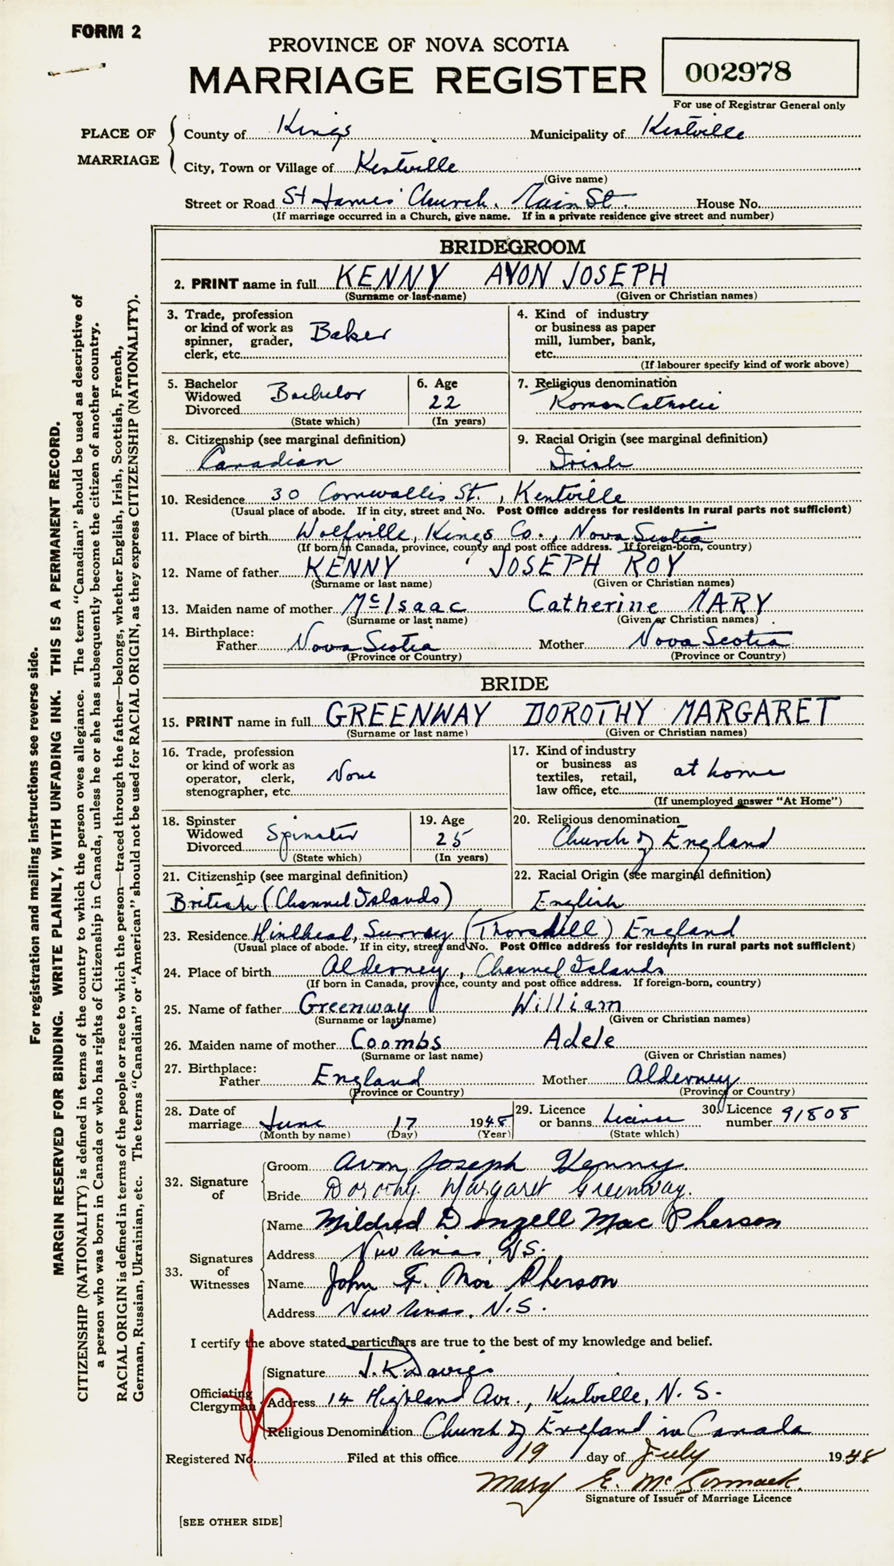 FORM 2
PROVINCE OF NOVA SCOTIA
MARRIAGE REGISTER
002978
For use of Registrar General only
PLACE OF MARRIAGE
County of Kings Municipality of Kentville
City, Town or Village of Kentville
(Give name)
Street or Road St James' Church. Main St. House No.
(If marriage occurred in a Church, give name. If in a private residence give street and number)
BRIDEGROOM
2. PRINT name in full KENNY AVON JOSEPH
(Surname or last name) (Given or Christian names)
3. Trade, profession or kind of work as spinner, grader, clerk, etc. Baker
4. Kind of industry or business as paper mill, lumber, bank, etc.
(If labourer specify kind of work above)
5. Bachelor Widowed Divorced Bachelor
(State which)
6. Age 22
(In years)
7. Religious denomination
Roman Catholic
8. Citizenship (see marginal definition)
Canadian
9. Racial Origin (see marginal definition)
Irish
10. Residence 30 Cornwallis St., Kentville
(Usual place of abode. If in city, street and No. Post Office address for residents in rural parts not sufficient)
11. Place of birth Wolfville, Kings Co., Nova Scotia
(If born in Canada, province, county and post office address. If foreign-born, country)
12. Name of father KENNY JOSEPH ROY
(Surname or last name) (Given or Christian names)
13. Maiden name of mother McIsaac Catherine MARY
(Surname or last name) (Given or Christian names)
14. Birthplace:
Father Nova Scotia Mother Nova Scotia
(Province or Country) (Province or Country)
BRIDE
15. PRINT name in full GREENWAY DOROTHY MARGARET
(Surname or last name) (Given or Christian names)
16. Trade, profession or kind of work as operator, clerk, stenographer, etc. None
17. Kind of industry or business as textiles, retail, law office, etc. at home
(If unemployed answer "At Home")
18. Spinster Widowed Divorced Spinster
(State which)
19. Age 25
(In years)
20. Religious denomination
Church of England
21. Citizenship (see marginal definition)
British (Channel Islands)
22. Racial Origin (see marginal definition)
English
23. Residence Hindhead, Surrey England
(Usual place of abode. If in city, street and No. Post Office address for residents in rural parts not sufficient)
24. Place of birth Alderney, Channel Islands
(If born in Canada, province, county and post office address. If foreign-born, country)
25. Name of father Greenway William
(Surname or last name) (Given or Christian names)
26. Maiden name of mother Coombs Adele
(Surname or last name) (Given or Christian names)
27. Birthplace:
Father England Mother Alderney
(Province or Country) (Province or Country)
28. Date of marriage June 17 1948
(Month by name) (Day) (Year)
29. Licence or banns License
(State which)
30. Licence number 91808
32. Signature of
Groom Avon Joseph Kenny
Bride Dorothy Margaret Greenway.
33. Signatures of Witnesses
Name Mildred Donzell MacPherson
Address New Minas, N.S.
Name John F. MacPherson
Address New Minas, N.S.
I certify the above stated particulars are true to the best of my knowledge and belief.
Officiating Clergyman
Signature J.K. Davies
Address 14 Highland Ave., Kentville, N.S.
Religious Denomination Church of England in Canada
Registered No. Filed at this office 19 day of July 1948
Mary E. McCormack.
Signature of Issuer of Marriage Licence
[SEE OTHER SIDE]
For registration and mailing instructions see reverse side.
MARGIN RESERVED FOR BINDING. WRITE PLAINLY, WITH UNFADING INK. THIS IS A PERMANENT RECORD.
CITIZENSHIP (NATIONALITY) is defined in terms of the country to which the person owes allegiance. The term "Canadian" should be used as descriptive of
a person who was born in Canada or who has rights of Citizenship in Canada, unless he or she has subsequently become the citizen of another country.
RACIAL ORIGIN is defined in terms of the people or race to which the person—traced through the father—belongs, whether English, Irish, Scottish, French,
German, Russian, Ukrainian, etc. The terms "Canadian" or "American" should not be used for RACIAL ORIGIN, as they express CITIZENSHIP (NATIONALITY).